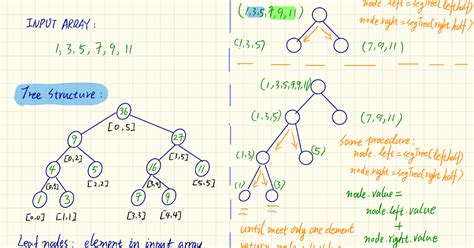 INPUT ARRAY:
1, 3, 5, 7, 9, 11
Tree Structure:
36
[0,5]
9
27
[0,2]
[3,5]
4
5
16
11
[0,1]
[2,2]
[3,4]
[5,5]
1
3
7
9
[0,0]
[1,1]
[3,3]
[4,4]
Leaf nodes: element in input array
(1,3,5,7,9,11)
node.left = segTree(left half)
node.right = segTree(right half)
(1,3,5)
(7,9,11)
(1,3,5,9,9,11)
(1,3,5)
(7,9,11)
(1,3)
(5)
(1)
(3)
Same procedure:
node.left = segTree(left half)
node.right = segTree(right half)
until meet only one element
return node
node.value =
node.left.value
+
node.right.value